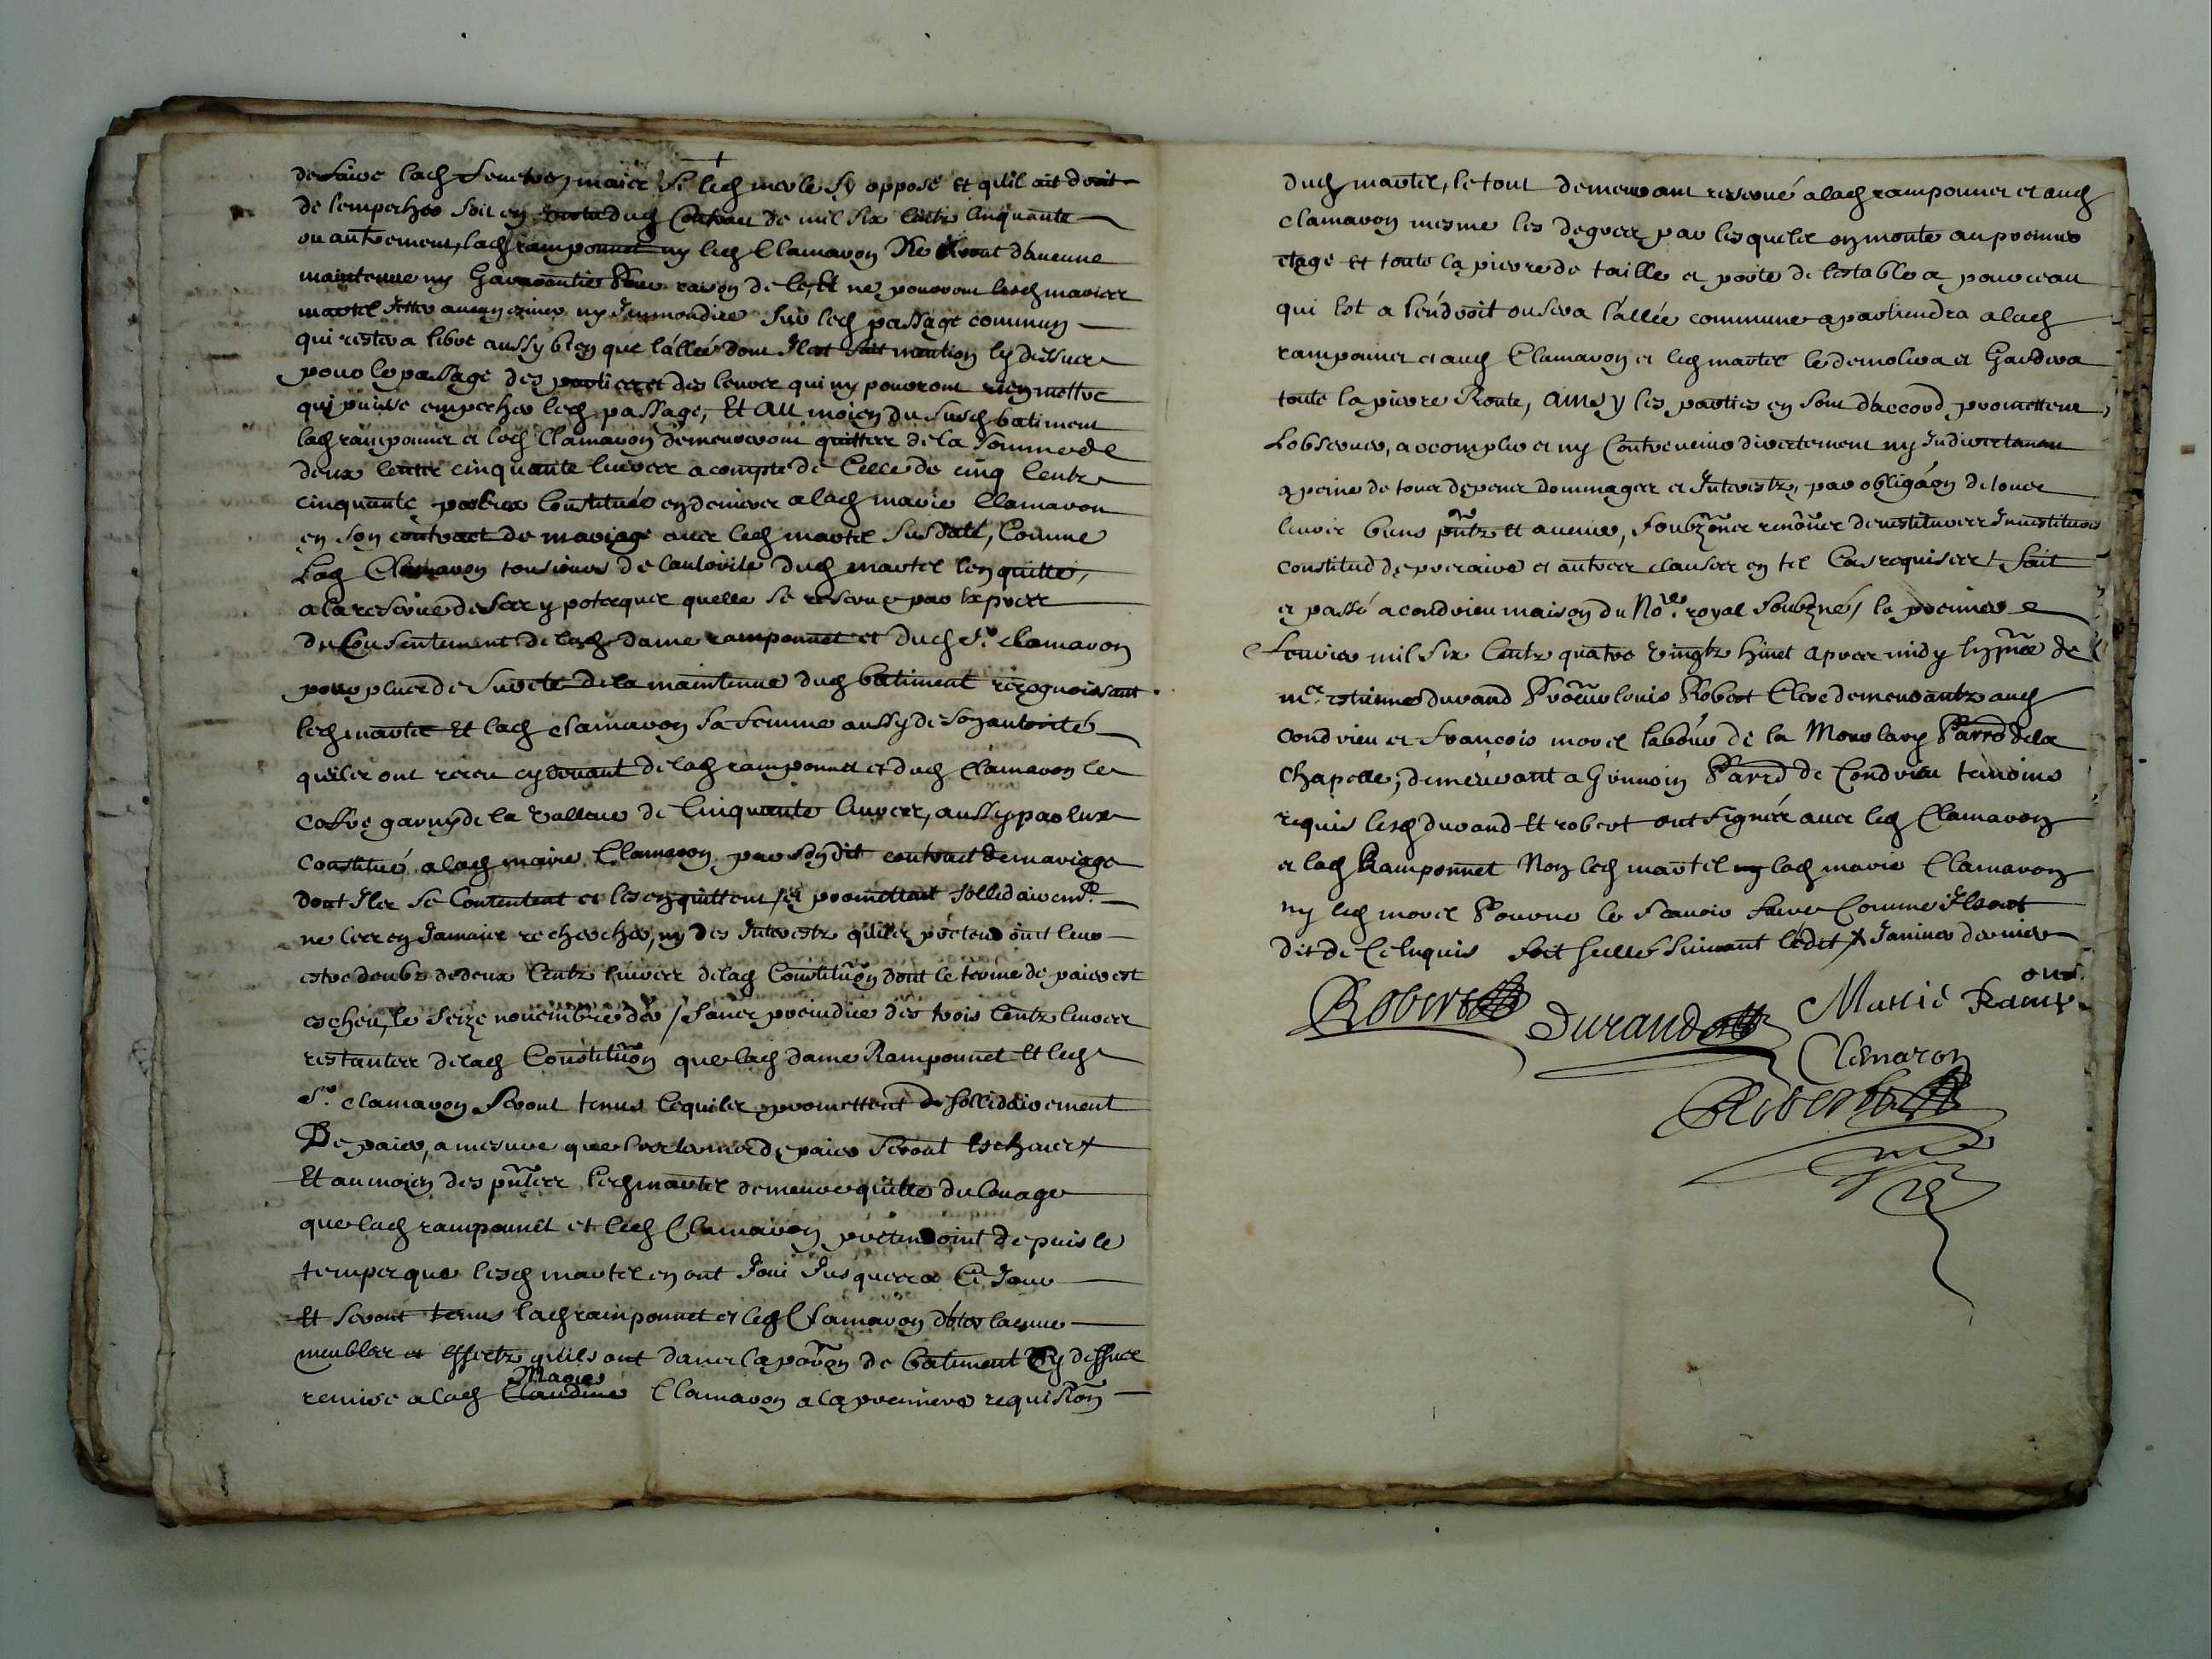 de faire lad fenetre, maies si led merle sy oppose et quil ait droit
de lempecher soit en vertu dud Contrau de mil six Centz Cinquante
ou autrement, lad ramponnet ny led Clamaron Ne seront daucune
maintenue ny Garrantie Pour raison de ce, Et ne pourront lesd mariees
martel Jetter aucun eviers ny Jmmondice sur led passage commun
qui restera libre aussy bien que lallée dont Jl est fait mention cy dessues
pour le passage des parties et des leurs qui ny pourront rien mettre
qui puisse empecher led passage, Et au moien du susd batiment
lad ramponnet et led Clamaron demeureront quittes de la somme de
deux Centz cinquante livres a compte de Celle de cinq Centz
cinquante par eux Constituée en deniers a lad marie Clamaron
en son contract de mariage avec led martel susdaté, Comme
Lad Clamaron tousjours de lautorité dud martel len quitte,
a la reserve de ses ypoteques quelle se reserve par expres
du Consentement de lad dame ramponnet et dud Sr. clamaron
pour plues de sureté de la maintenue dud batiment recognoissant
led martel Et lad clamaron sa femme aussy de son autorité
quiles ont receu cy devant de lad ramponnet et dud Clamaron le
coffre garny de la valleur de Cinquante livres, aussy par eux
constitué a lad marie Clamaron par son dit contract de mariage
dont Jles se Contentent et les en quittent et promettent sollidairemt.
ne les en Jamaies rechercher, ny des Jnterestz quiles pretendoint leur
estre deubz de deux Centz livres de lad Constituōn dont le terme de paier est
escheu, le seize novembre der / sances prejudice des trois Centz livres
restantes de lad Constituōn que lad dame Ramponnet Et led
Sr. clamaron seront tenus lequiles promettent sollidairement
De paier, a mesure que les termes de paier seront escheues
Et au moien des pn̄tes led martel demeure quitte du louage
que lad ramponnet et led Clamaron pretendoint depuis le
tempes que lesd martel en ont Joui Jusquees a Ce Jour
Et seront tenus lad ramponnet et led Clamaron doter
meubles et effectz quils ont dans la porōn de batiment Cy dessues
remise a lad Claudine Marie Clamaron a la premiere requisiōn
dud martel, le tout demeurant reservé a lad ramponnet et aud
clamaron mesme les degrees par lesqueles on monte au premier
etage et toute la pierre de taille et porte de lestable a pourceau
qui est a lendroit ou sera lallée commune apartiendra a lad
ramponnet et aud Clamaron et led martel le demolira et Gardera
toute la pierre Route, ainsy les parties en sont daccord promettent
Lobserver, accomplir et ny Contrevenir directement ny Jndirectement
a peine de toues depenes dommages et Jnterestz, par obligāon de toues
leurs biens pn̄tz et avenir, soubzōnes renōnes de restituerr
constitud de precaire et autres clauses en tel Cas requises / fait
et passé a condrieu maison du Nore. royal soubzné, le premier
fevrier mil six Centz quatre vingtz huict apres midy en pn̄ce de
mre. estienne durand Procur louis Robert Clerc demeurantz aud
condrieu et francois morel labour de la Parrd de la
chapelle, demeurant a Parrd de Condrieu temoins
requis lesd durand Et robert ont signés avec led Clamaron
et lad Ramponnet Non led martel ny lad marie Clamaron
ny led morel Pour ne le scavoir faire Comme Jls ont
dit de Ce Enquis soit scellé suivant ledit de Janvier dernier
Robert
Durand
Marie Ramponet
Clemaron
Robert